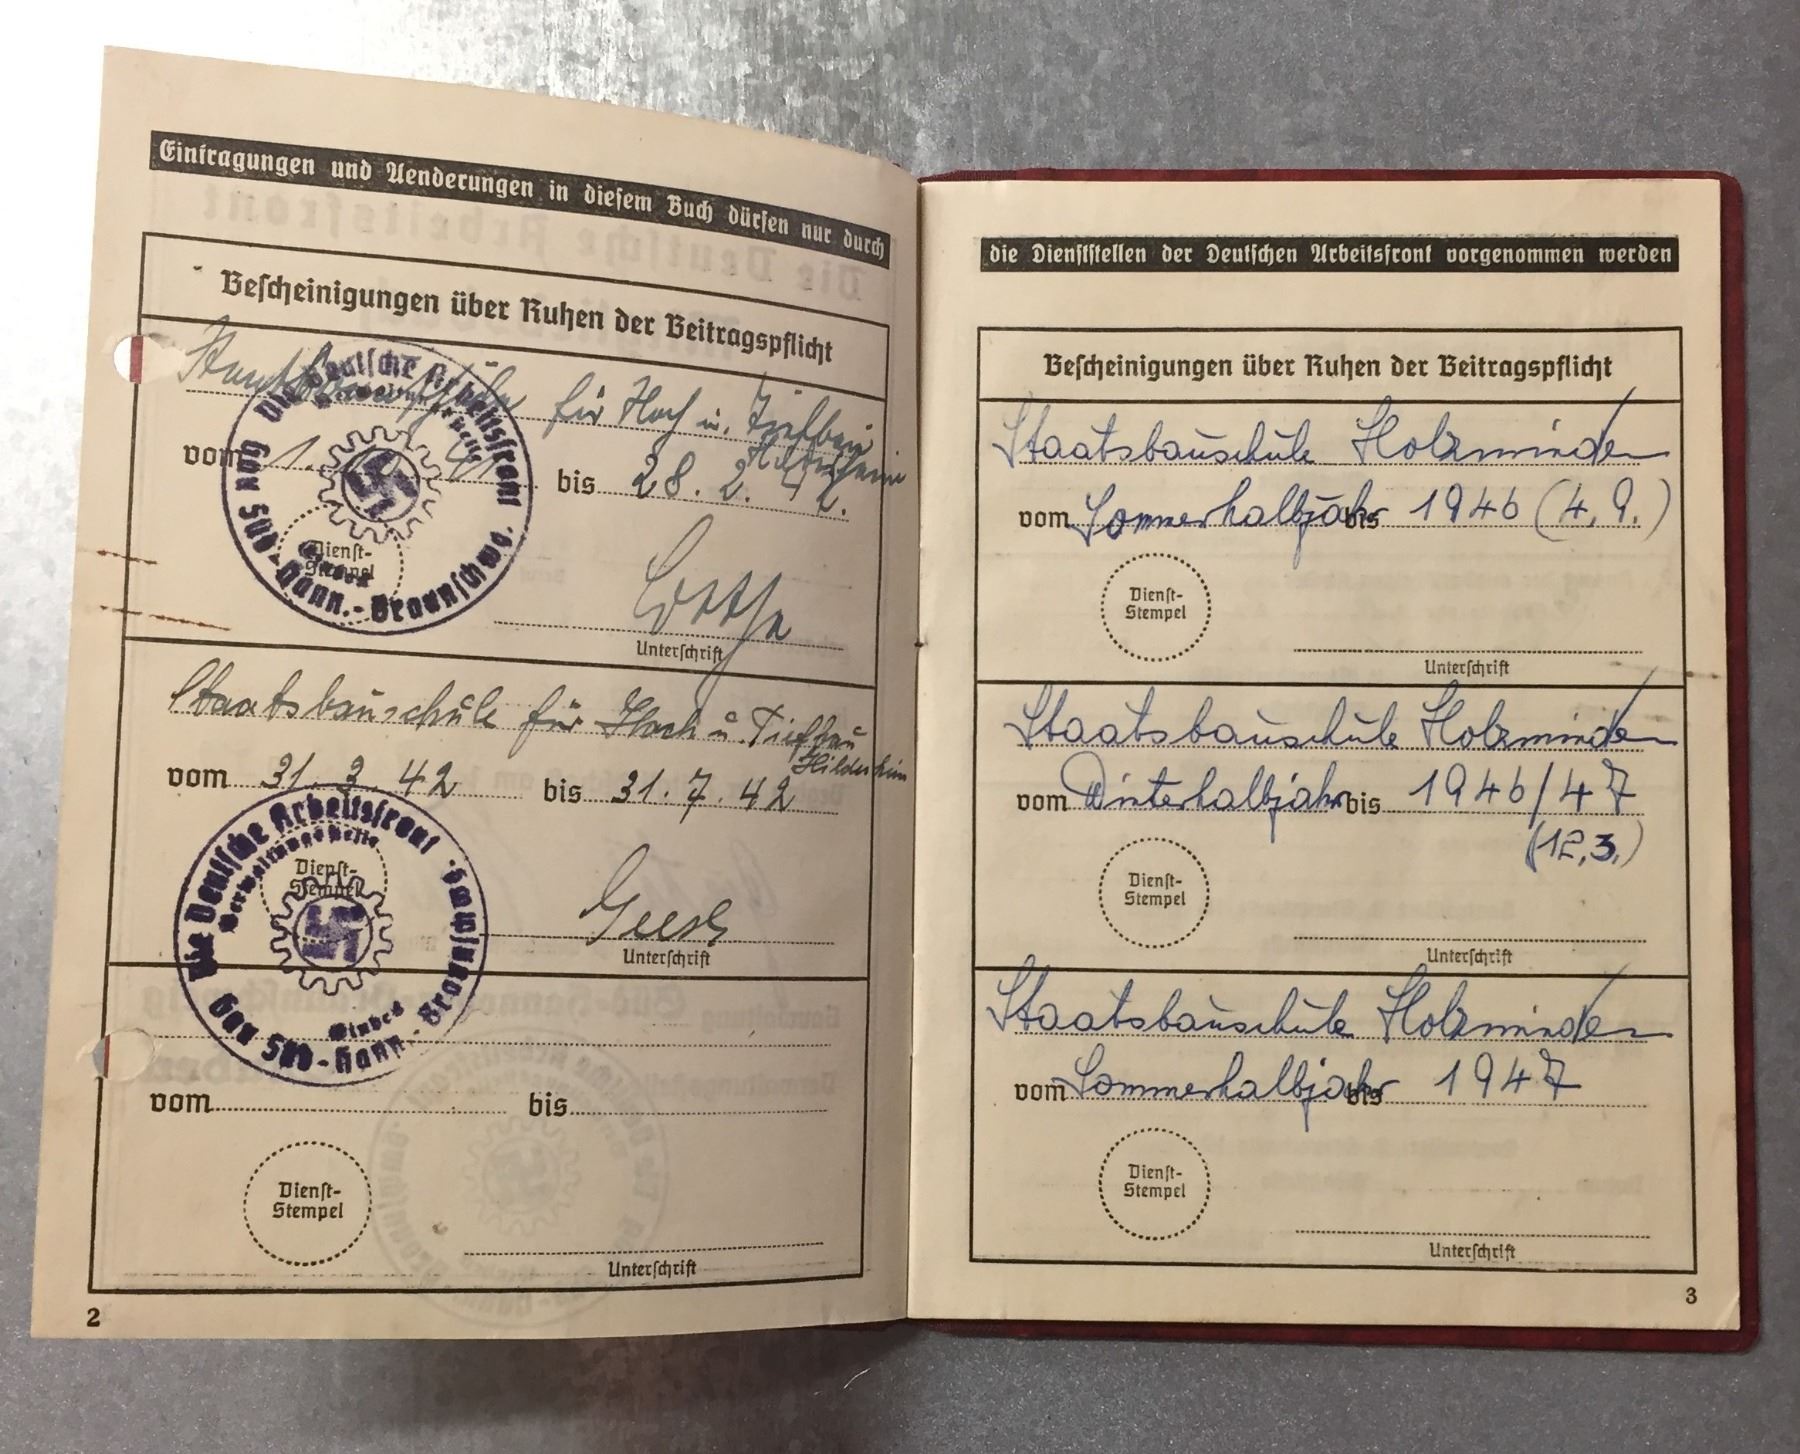 Eintragungen und Aenderungen in diesem Buch dürfen nur durch
Bescheinigungen über Ruhen der Beitragspflicht
für Hoch u. Tiefbau
vom 1. 41 bis 28. 2. 42.
Die Deutsche Arbeitsfront
Gau Süd-Hann.-Braunschwg.
Dienst-
Stempel
Unterschrift
Staatsbauschule für Hoch u. Tiefbau
Hildesheim
vom 31. 3. 42 bis 31. 7. 42
Die Deutsche Arbeitsfront
Verwaltungsstelle
Gau Süd-Hann.-Braunschwg.
Dienst-
Stempel
Unterschrift
vom bis
Dienst-
Stempel
Unterschrift
2
die Dienststellen der Deutschen Arbeitsfront vorgenommen werden
Bescheinigungen über Ruhen der Beitragspflicht
Staatsbauschule Holzminden
vom Sommerhalbjahr bis 1946 (4. 9.)
Dienst-
Stempel
Unterschrift
Staatsbauschule Holzminden
vom Winterhalbjahr bis 1946/47
(12. 3.)
Dienst-
Stempel
Unterschrift
Staatsbauschule Holzminden
vom Sommerhalbjahr bis 1947
Dienst-
Stempel
Unterschrift
3